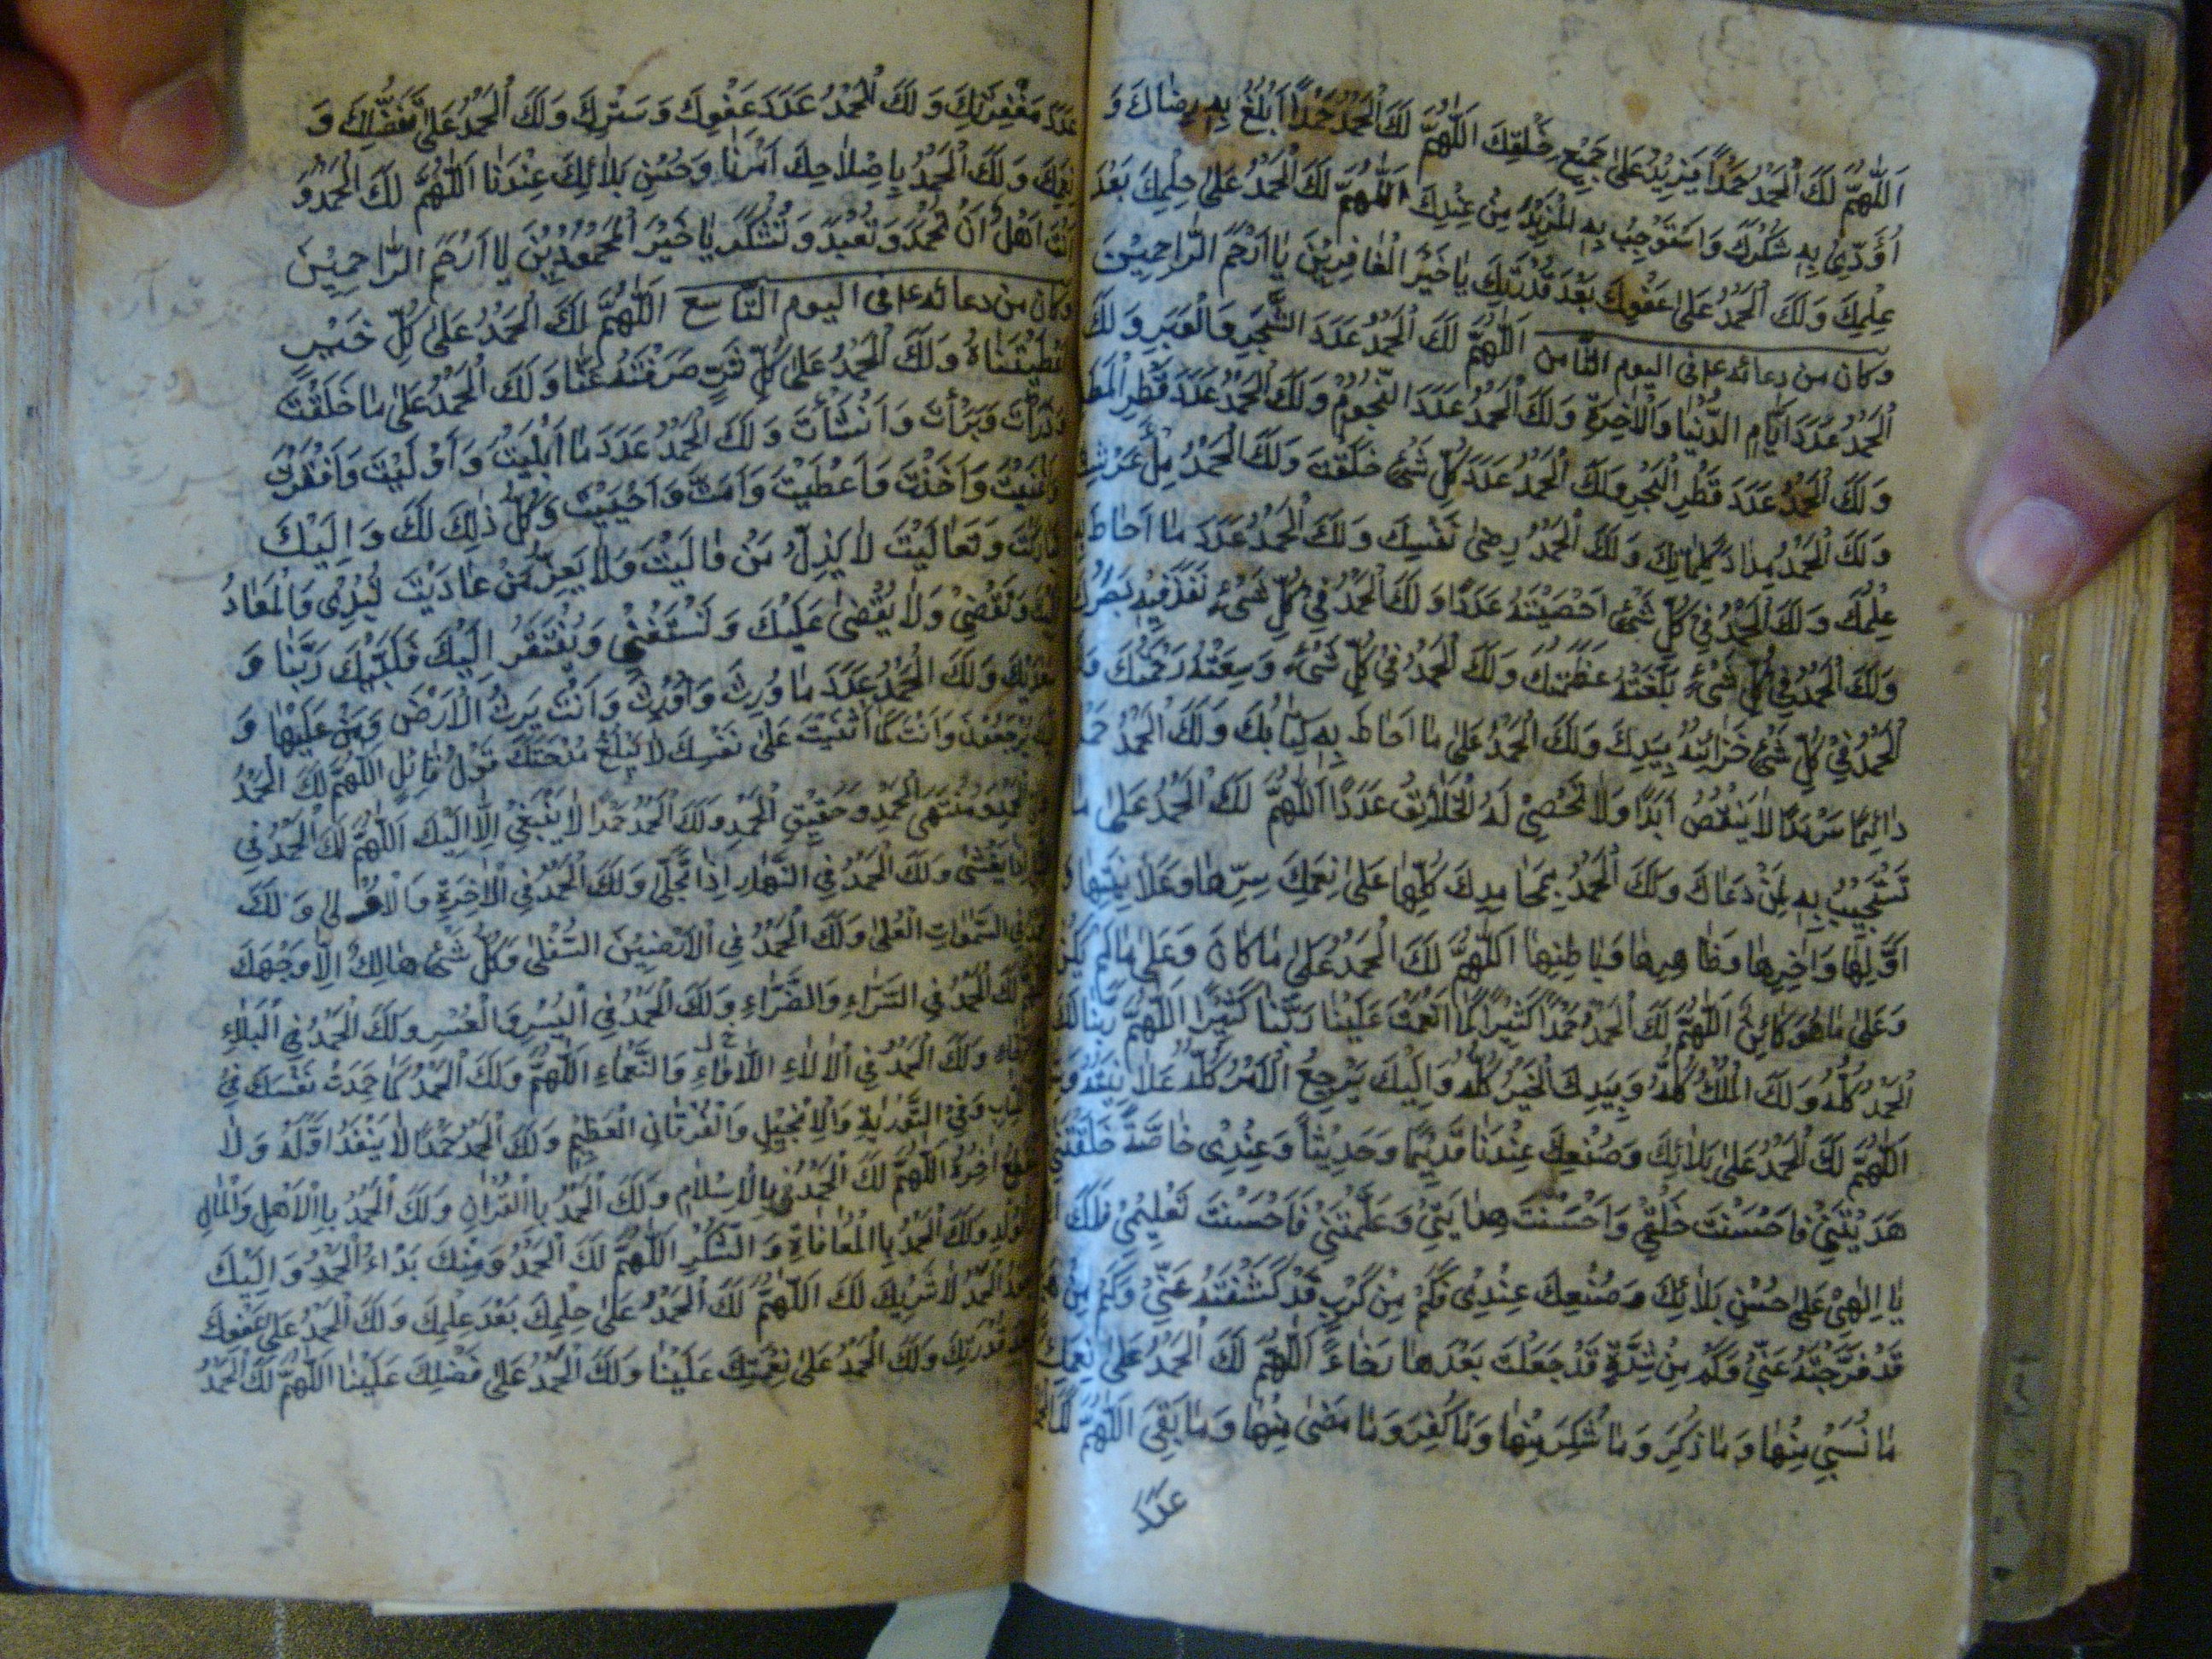 اَللّٰهُمَّ لَكَ الْحَمْدُ حَمْدًا يَزِيْدُ عَلٰى جَمِيْعِ خَلْقِكَ اَللّٰهُمَّ لَكَ الْحَمْدُ حَمْدًا اَبْلُغُ بِهِ رِضَاكَ وَ
اُؤَدِّىْ بِهِ شُكْرَكَ وَاَسْتَوْجِبُ بِهِ الْمَزِيْدَ مِنْ عِنْدِكَ اَللّٰهُمَّ لَكَ الْحَمْدُ عَلٰى حِلْمِكَ بَعْدَ
عِلْمِكَ وَلَكَ الْحَمْدُ عَلٰى عَفْوِكَ بَعْدَ قُدْرَتِكَ يَا خَيْرَ الْغَافِرِيْنَ يَا اَرْحَمَ الرَّاحِمِيْنَ
وكان من دعائه ع فى اليوم الثامن اَللّٰهُمَّ لَكَ الْحَمْدُ عَدَدَ الشَّجَرِ وَالْوَبَرِ وَلَكَ
الْحَمْدُ عَدَدَ اَيَّامِ الدُّنْيَا وَالْاٰخِرَةِ وَلَكَ الْحَمْدُ عَدَدَ النُّجُوْمِ وَلَكَ الْحَمْدُ عَدَدَ قَطْرِ الْمَطَرِ
وَلَكَ الْحَمْدُ عَدَدَ قَطْرِ الْبَحْرِ وَلَكَ الْحَمْدُ عَدَدَ كُلِّ شَىْءٍ خَلَقْتَ وَلَكَ الْحَمْدُ مِلْأَ عَرْشِكَ
وَلَكَ الْحَمْدُ مِدَادَ كَلِمَاتِكَ وَلَكَ الْحَمْدُ رِضٰى نَفْسِكَ وَلَكَ الْحَمْدُ عَدَدَ مَا اَحَاطَ بِهِ
عِلْمُكَ وَلَكَ الْحَمْدُ فِىْ كُلِّ شَىْءٍ اَحْصَيْتَهُ عَدَدًا وَلَكَ الْحَمْدُ فِىْ كُلِّ شَىْءٍ نَفَذَ فِيْهِ بَصَرُكَ
وَلَكَ الْحَمْدُ فِىْ كُلِّ شَىْءٍ بَلَغَتْهُ عَظَمَتُكَ وَلَكَ الْحَمْدُ فِىْ كُلِّ شَىْءٍ وَسِعَتْهُ رَحْمَتُكَ
الْحَمْدُ فِىْ كُلِّ شَىْءٍ خَزَائِنُهُ بِيَدِكَ وَلَكَ الْحَمْدُ عَلٰى مَا اَحَاطَ بِهِ كِتَابُكَ وَلَكَ الْحَمْدُ حَمْدًا
دَائِمًا سَرْمَدًا لَا يَنْقُصُ اَبَدًا وَلَا تُحْصِىْ لَهُ الْخَلَائِقُ عَدَدًا اَللّٰهُمَّ لَكَ الْحَمْدُ عَلٰى مَا
تَسْتَجِيْبُ بِهِ لِمَنْ دَعَاكَ وَلَكَ الْحَمْدُ بِمَحَامِدِكَ كُلِّهَا عَلٰى نِعَمِكَ سِرِّهَا وَعَلَانِيَتِهَا وَ
اَوَّلِهَا وَاٰخِرِهَا وَظَاهِرِهَا وَبَاطِنِهَا اَللّٰهُمَّ لَكَ الْحَمْدُ عَلٰى مَا كَانَ وَعَلٰى مَا لَمْ يَكُنْ
وَعَلٰى مَا هُوَ كَائِنٌ اَللّٰهُمَّ لَكَ الْحَمْدُ حَمْدًا كَثِيْرًا كَمَا اَنْعَمْتَ عَلَيْنَا رَبَّنَا كَثِيْرًا اَللّٰهُمَّ رَبَّنَا لَكَ
الْحَمْدُ كُلُّهُ وَلَكَ الْمُلْكُ كُلُّهُ وَبِيَدِكَ الْخَيْرُ كُلُّهُ وَاِلَيْكَ يَرْجِعُ الْاَمْرُ كُلُّهُ عَلَانِيَتُهُ
اَللّٰهُمَّ لَكَ الْحَمْدُ عَلٰى بَلَائِكَ وَصُنْعِكَ عِنْدَنَا قَدِيْمًا وَحَدِيْثًا وَعِنْدِىْ خَاصَّةً خَلَقْتَنِىْ
هَدَيْتَنِىْ فَاَحْسَنْتَ خَلْقِىْ وَاَحْسَنْتَ هِدَايَتِىْ وَعَلَّمْتَنِىْ فَاَحْسَنْتَ تَعْلِيْمِىْ فَلَكَ
يَا اِلٰهِىْ عَلٰى حُسْنِ بَلَائِكَ وَصُنْعِكَ عِنْدِىْ فَكَمْ مِنْ كَرْبٍ قَدْ كَشَفْتَهُ عَنِّىْ وَكَمْ مِنْ
قَدْ فَرَّجْتَهُ عَنِّىْ وَكَمْ مِنْ شِدَّةٍ قَدْ جَعَلْتَ بَعْدَهَا رَخَاءً اَللّٰهُمَّ لَكَ الْحَمْدُ عَلٰى نِعَمِكَ
مَا نُسِىَ مِنْهَا وَمَا ذُكِرَ وَمَا شُكِرَ مِنْهَا وَمَا كُفِرَ وَمَا مَضٰى مِنْهَا وَمَا بَقِىَ اَللّٰهُمَّ لَكَ
عَدَدَ
عَدَدَ مَغْفِرَتِكَ وَلَكَ الْحَمْدُ عَدَدَ عَفْوِكَ وَسَتْرِكَ وَلَكَ الْحَمْدُ عَلٰى تَفَضُّلِكَ وَ
نِعَمِكَ وَلَكَ الْحَمْدُ بِاِصْلَاحِكَ اَمْرَنَا وَحُسْنِ بَلَائِكَ عِنْدَنَا اَللّٰهُمَّ لَكَ الْحَمْدُ وَ
اَنْتَ اَهْلُ اَنْ تُحْمَدَ وَتُعْبَدَ وَتُشْكَرَ يَا خَيْرَ الْمَحْمُوْدِيْنَ يَا اَرْحَمَ الرَّاحِمِيْنَ
وكان من دعائه ع فى اليوم التاسع اَللّٰهُمَّ لَكَ الْحَمْدُ عَلٰى كُلِّ خَيْرٍ
اَعْطَيْتَنَاهُ وَلَكَ الْحَمْدُ عَلٰى كُلِّ شَرٍّ صَرَفْتَهُ عَنَّا وَلَكَ الْحَمْدُ عَلٰى مَا خَلَقْتَ
وَذَرَأْتَ وَبَرَأْتَ وَاَنْشَأْتَ وَلَكَ الْحَمْدُ عَدَدَ مَا اَبْلَيْتَ وَاَوْلَيْتَ وَاَفْقَرْتَ
وَاَغْنَيْتَ وَاَخَذْتَ وَاَعْطَيْتَ وَاَمَتَّ وَاَحْيَيْتَ وَكُلُّ ذٰلِكَ لَكَ وَاِلَيْكَ
تَبَارَكْتَ وَتَعَالَيْتَ لَا يَذِلُّ مَنْ وَالَيْتَ وَلَا يَعِزُّ مَنْ عَادَيْتَ تُبْدِئُ وَالْمَعَادُ
اِلَيْكَ وَتَقْضِىْ وَلَا يُقْضٰى عَلَيْكَ وَتَسْتَغْنِىْ وَيُفْتَقَرُ اِلَيْكَ فَلَبَّيْكَ رَبَّنَا وَ
سَعْدَيْكَ وَلَكَ الْحَمْدُ عَدَدَ مَا وَرِثَ وَاَوْرَثَ وَاَنْتَ تَرِثُ الْاَرْضَ وَمَنْ عَلَيْهَا وَ
اِلَيْكَ يُرْجَعُوْنَ وَاَنْتَ كَمَا اَثْنَيْتَ عَلٰى نَفْسِكَ لَا يَبْلُغُ مِدْحَتَكَ قَوْلُ قَائِلٍ اَللّٰهُمَّ لَكَ الْحَمْدُ
وَمُنْتَهَى الْحَمْدِ وَحَقِيْقِ الْحَمْدِ وَلَكَ الْحَمْدُ حَمْدًا لَا يَنْبَغِىْ اِلَّا اِلَيْكَ اَللّٰهُمَّ لَكَ الْحَمْدُ فِى
اِذَا يَغْشٰى وَلَكَ الْحَمْدُ فِى النَّهَارِ اِذَا تَجَلّٰى وَلَكَ الْحَمْدُ فِى الْاٰخِرَةِ وَالْاُوْلٰى وَلَكَ
الْحَمْدُ فِى السَّمٰوَاتِ الْعُلٰى وَلَكَ الْحَمْدُ فِى الْاَرَضِيْنَ السُّفْلٰى وَكُلُّ شَىْءٍ هَالِكٌ اِلَّا وَجْهَكَ
لَكَ الْحَمْدُ فِى السَّرَّاءِ وَالضَّرَّاءِ وَلَكَ الْحَمْدُ فِى الْيُسْرِ وَالْعُسْرِ وَلَكَ الْحَمْدُ فِى الْبَلَاءِ
وَلَكَ الْحَمْدُ فِى الْاٰلَاءِ وَالنَّعْمَاءِ اَللّٰهُمَّ وَلَكَ الْحَمْدُ كَمَا حَمِدْتَ نَفْسَكَ فِىْ
الْكِتَابِ وَفِى التَّوْرٰيةِ وَالْاِنْجِيْلِ وَالْفُرْقَانِ الْعَظِيْمِ وَلَكَ الْحَمْدُ حَمْدًا لَا يَنْفَدُ اَوَّلُهُ وَلَا
يَنْقَطِعُ اٰخِرُهُ اَللّٰهُمَّ لَكَ الْحَمْدُ بِالْاِسْلَامِ وَلَكَ الْحَمْدُ بِالْقُرْاٰنِ وَلَكَ الْحَمْدُ بِالْاَهْلِ وَالْمَالِ
وَالْوَلَدِ وَلَكَ الْحَمْدُ بِالْمُعَافَاةِ وَالشُّكْرِ اَللّٰهُمَّ لَكَ الْحَمْدُ وَمِنْكَ بَدْاءُ الْحَمْدِ وَاِلَيْكَ
الْحَمْدُ لَا شَرِيْكَ لَكَ اَللّٰهُمَّ لَكَ الْحَمْدُ عَلٰى حِلْمِكَ بَعْدَ عِلْمِكَ وَلَكَ الْحَمْدُ عَلٰى عَفْوِكَ
بَعْدَ قُدْرَتِكَ وَلَكَ الْحَمْدُ عَلٰى نِعْمَتِكَ عَلَيْنَا وَلَكَ الْحَمْدُ عَلٰى فَضْلِكَ عَلَيْنَا اَللّٰهُمَّ لَكَ الْحَمْدُ